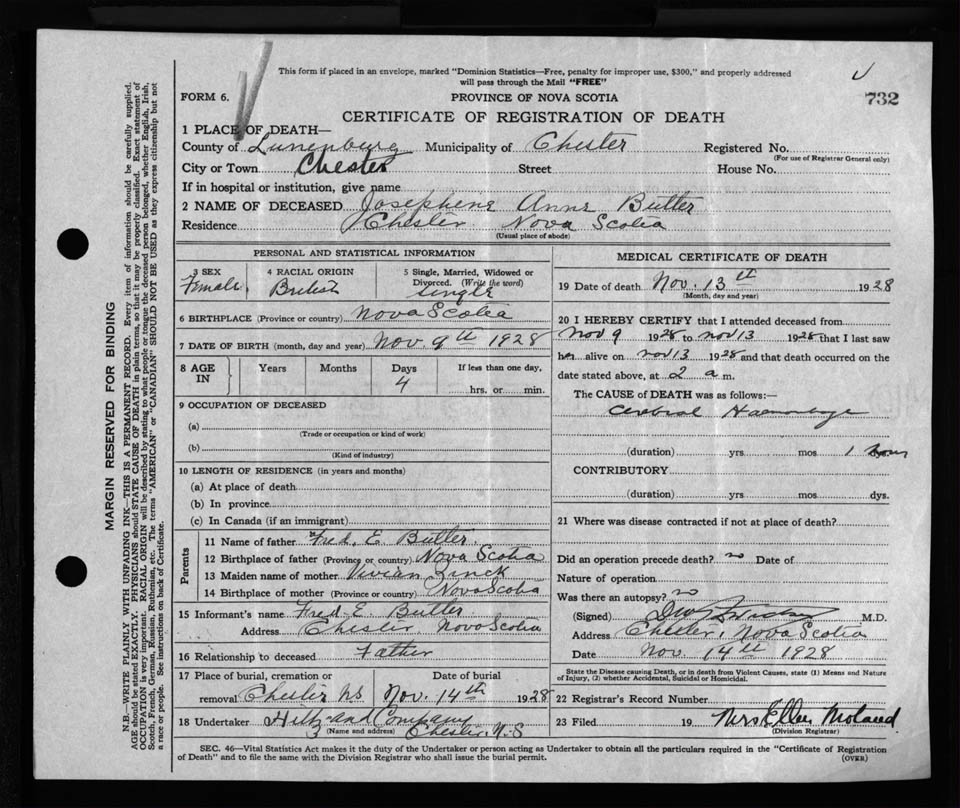 This form if placed in an envelope, marked "Dominion Statistics—Free, penalty for improper use, $300," and properly addressed
will pass through the Mail "FREE"
FORM 6.
PROVINCE OF NOVA SCOTIA
732
CERTIFICATE OF REGISTRATION OF DEATH
1 PLACE OF DEATH—
County of Lunenburg Municipality of Chester Registered No.
(For use of Registrar General only)
City or Town Chester Street House No.
If in hospital or institution, give name
2 NAME OF DECEASED Josephene Anne Butler
Residence Chester Nova Scotia
(Usual place of abode)
PERSONAL AND STATISTICAL INFORMATION
3 SEX
Female.
4 RACIAL ORIGIN
British
5 Single, Married, Widowed or
Divorced. (Write the word)
single
6 BIRTHPLACE (Province or country) Nova Scotia
7 DATE OF BIRTH (month, day and year) Nov. 9th 1928
8 AGE
IN
Years Months Days If less than one day,
4 hrs. or min.
9 OCCUPATION OF DECEASED
(a)
(Trade or occupation or kind of work)
(b)
(Kind of industry)
10 LENGTH OF RESIDENCE (in years and months)
(a) At place of death
(b) In province
(c) In Canada (if an immigrant)
Parents
11 Name of father Fred. E Butler
12 Birthplace of father (Province or country) Nova Scotia
13 Maiden name of mother Vivian Zinck
14 Birthplace of mother (Province or country) Nova Scotia
15 Informant's name Fred E. Butler
Address Chester Nova Scotia
16 Relationship to deceased Father
17 Place of burial, cremation or
removal Chester NS
Date of burial
Nov. 14th 1928
18 Undertaker Hiltz and Company
(Name and address) Chester, N.S
MEDICAL CERTIFICATE OF DEATH
19 Date of death Nov. 13th 1928
(Month, day and year)
20 I HEREBY CERTIFY that I attended deceased from
Nov 9 1928 to Nov 13 1928 that I last saw
her alive on Nov 13 1928 and that death occurred on
date stated above, at 2 a m.
The CAUSE of DEATH was as follows:—
Cerebral Haemorhage
(duration) yrs mos 1
CONTRIBUTORY
(duration) yrs mos dys.
21 Where was disease contracted if not at place of death?
Did an operation precede death? no Date of
Nature of operation
Was there an autopsy? no
(Signed) M.D.
Address Chester, Nova Scotia
Date Nov 14th 1928
State the Disease causing Death, or in death from Violent Causes, state (1) Means and Nature
of Injury, (2) whether Accidental, Suicidal or Homicidal.
22 Registrar's Record Number
23 Filed 19 Mrs Ellen
(Division Registrar)
SEC. 46—Vital Statistics Act makes it the duty of the Undertaker or person acting as Undertaker to obtain all the particulars required in the "Certificate of Registration
of Death" and to file the same with the Division Registrar who shall issue the burial permit.
(OVER)
MARGIN RESERVED FOR BINDING
N.B.—WRITE PLAINLY WITH UNFADING INK—THIS IS A PERMANENT RECORD. Every item of information should be carefully supplied.
AGE should be stated EXACTLY. PHYSICIANS should STATE CAUSE OF DEATH in plain terms, so that it may be properly classified. Exact statement of
OCCUPATION is very important. RACIAL ORIGIN will be described by stating to what people or tongue the deceased person belonged, whether English, Irish,
Scotch, French, German, Russian, Ruthenian, etc. The terms "AMERICAN" or "CANADIAN" SHOULD NOT BE USED as they express citizenship but not
a race or people. See instructions on back of Certificate.